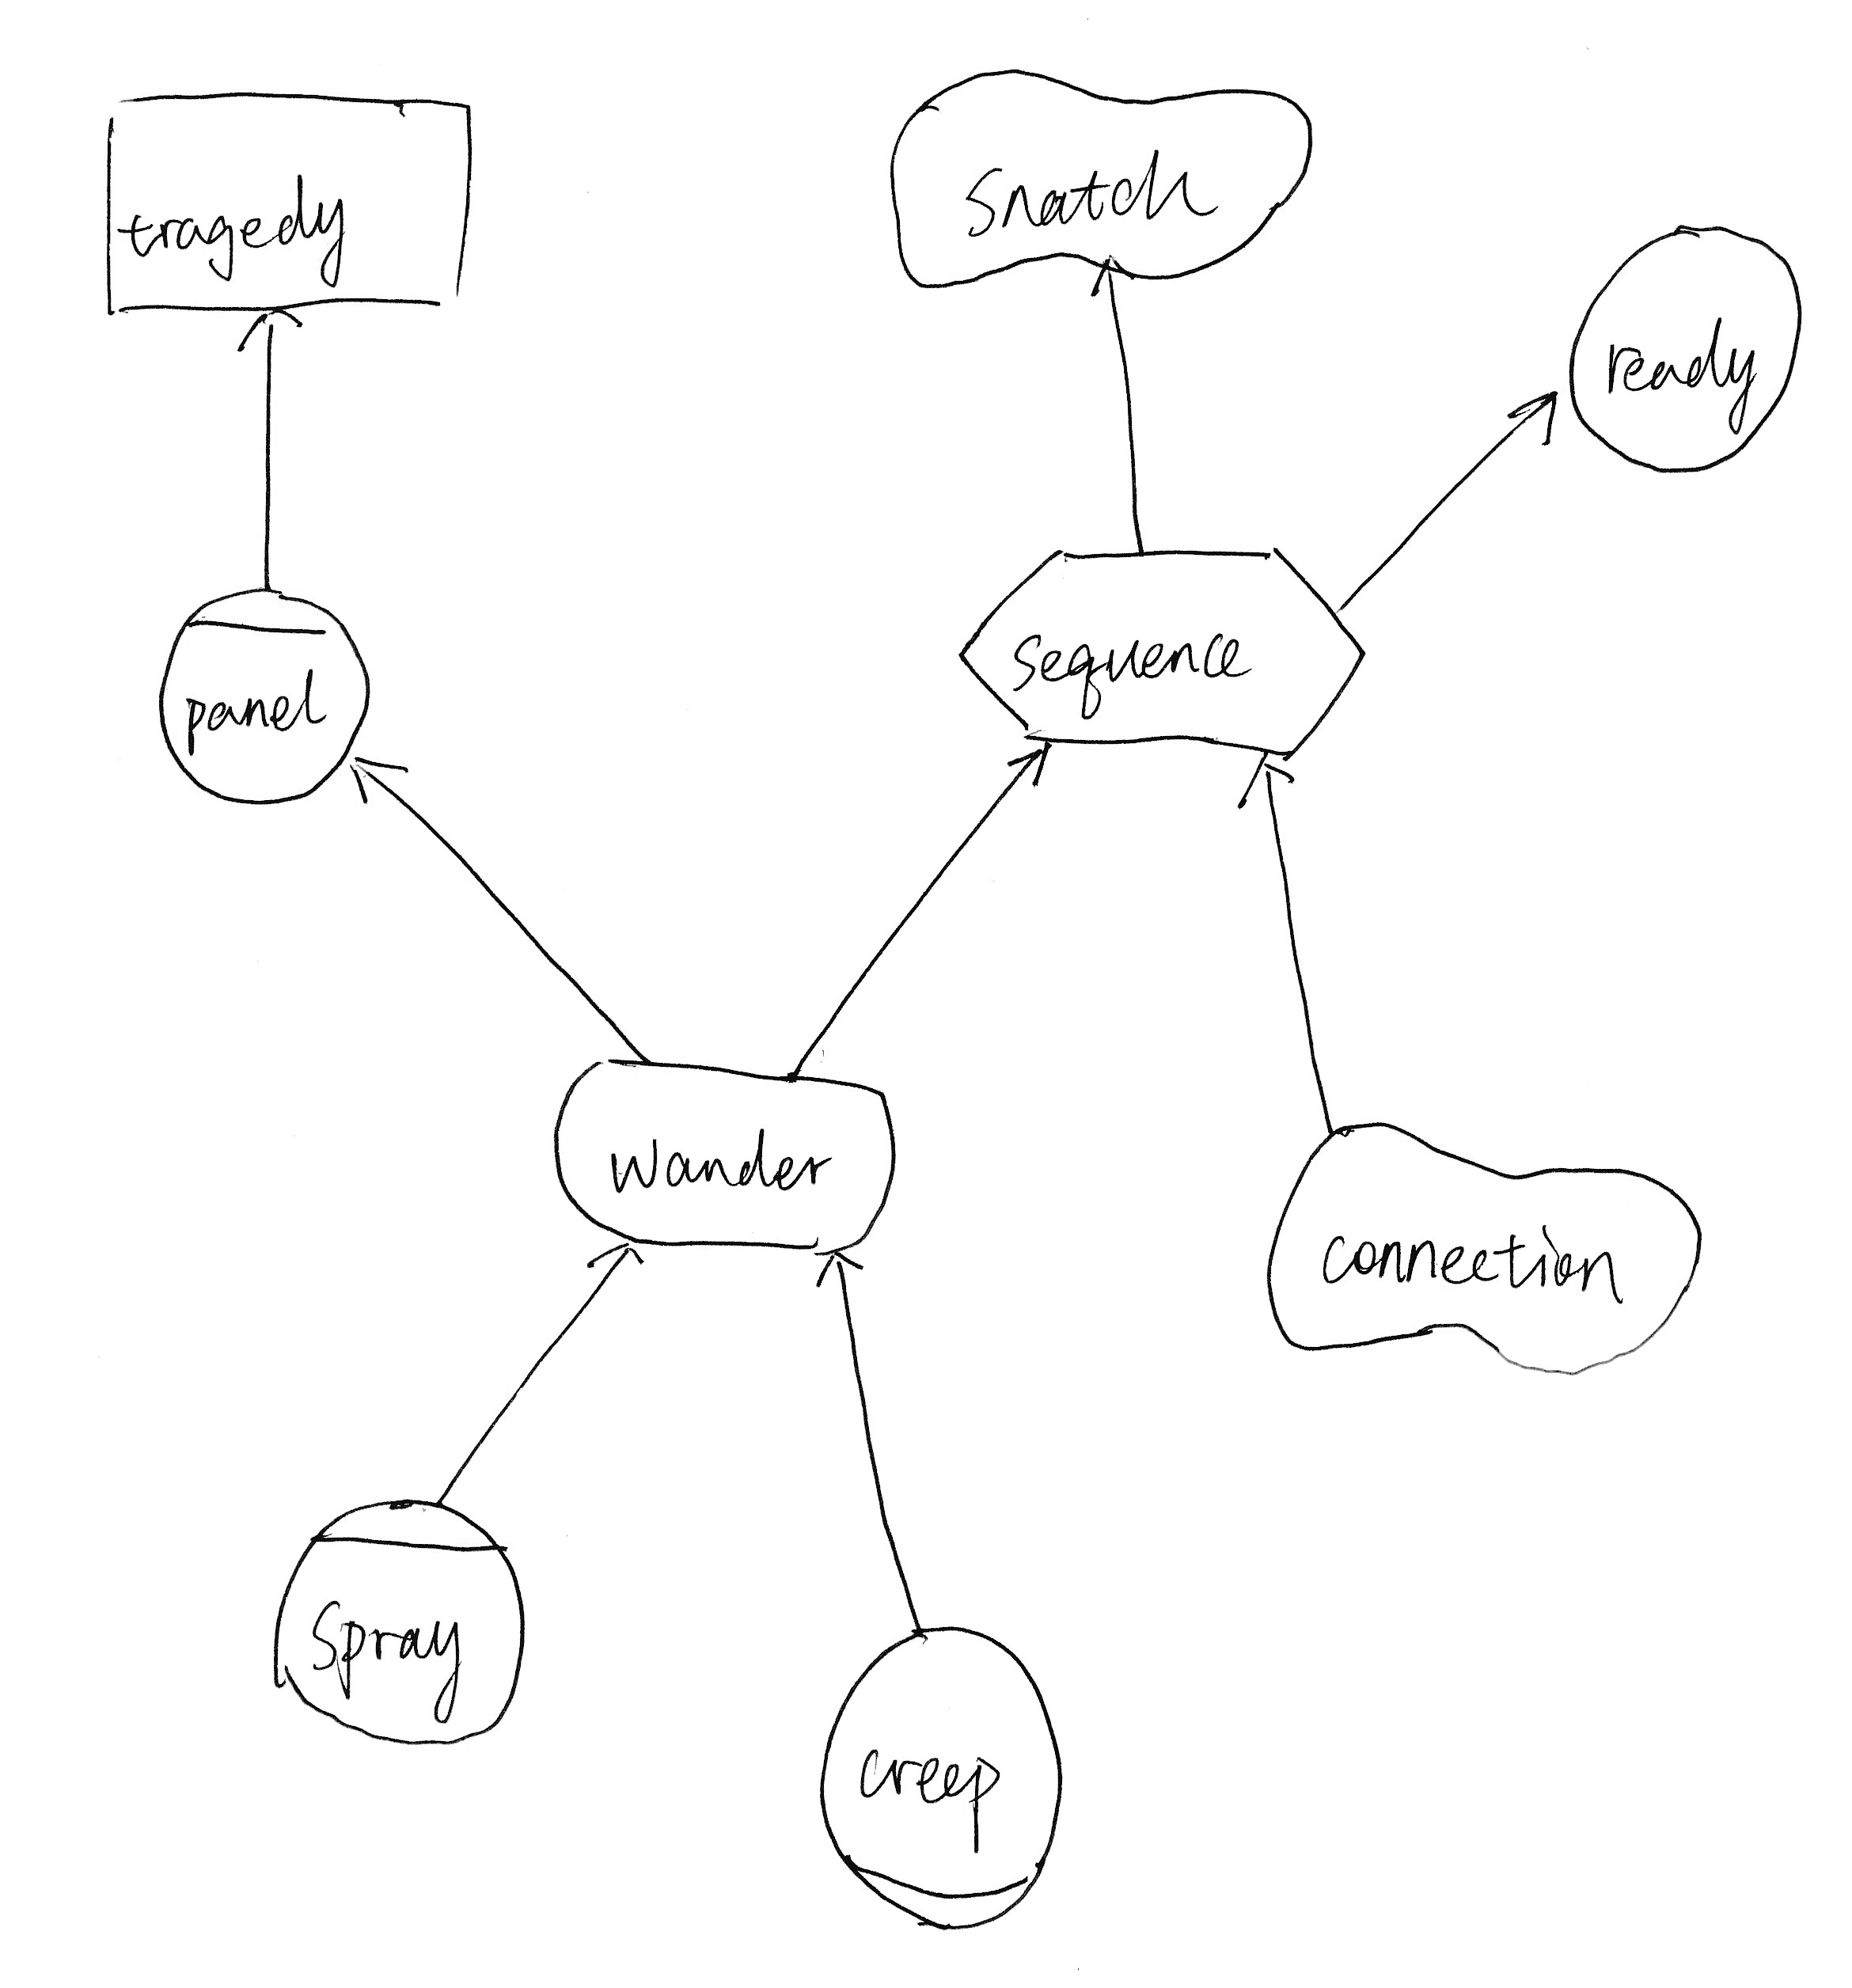 tragedy
Snatch
ready
panel
sequence
Wander
connection
Spray
creep